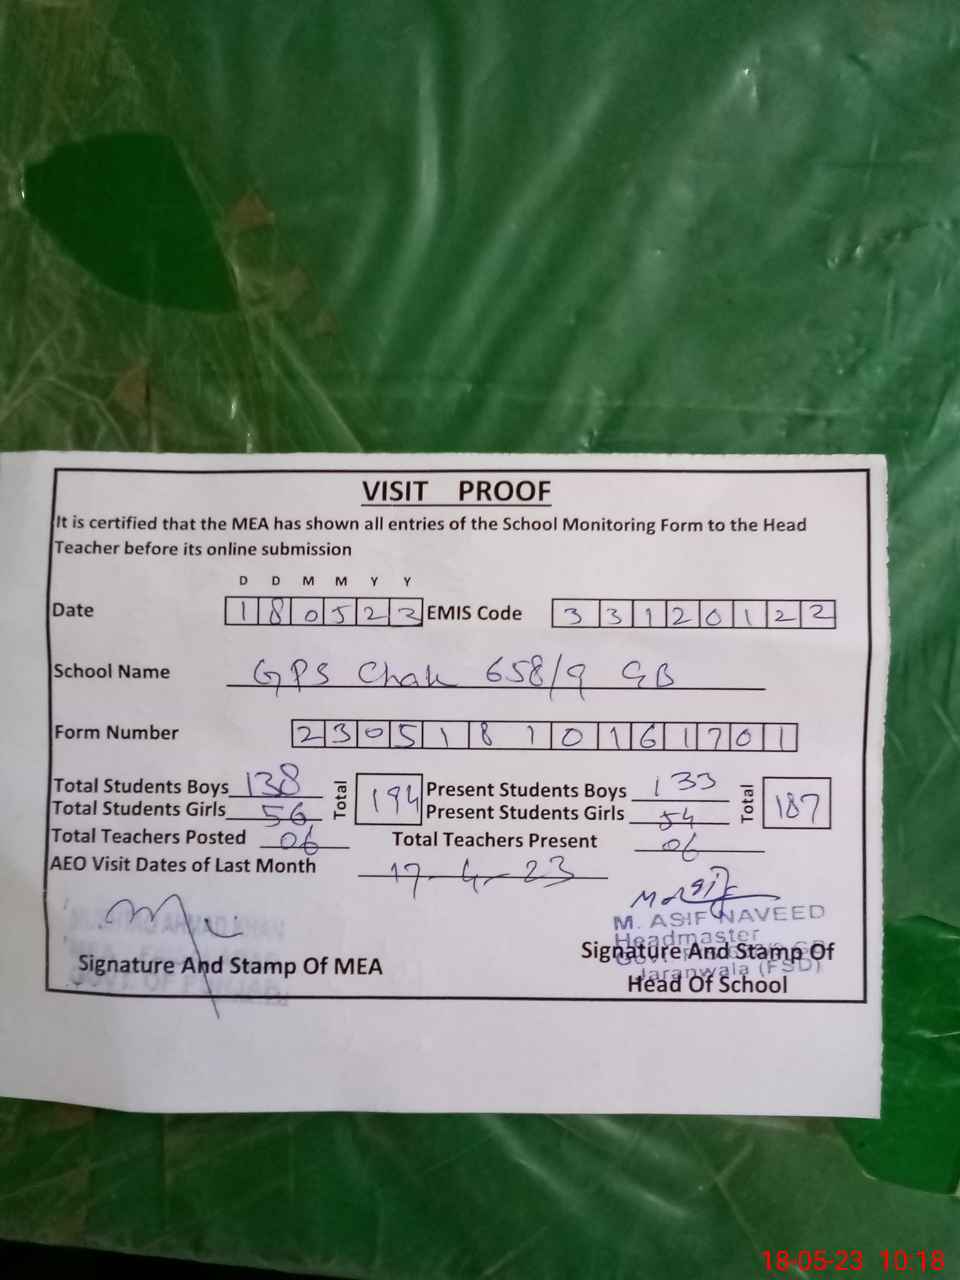 VISIT PROOF
It is certified that the MEA has shown all entries of the School Monitoring Form to the Head
Teacher before its online submission
D D M M Y Y
Date 1 8 0 5 2 3 EMIS Code 3 3 1 2 0 1 2 2
School Name GPS Chak 658/9 GB
Form Number 2 3 0 5 1 8 1 0 1 6 1 7 0 1
Total Students Boys 138 Total 194 Present Students Boys 133 Total 187
Total Students Girls 56 Present Students Girls 54
Total Teachers Posted 06 Total Teachers Present 06
AEO Visit Dates of Last Month 17-4-23
M. ASIF NAVEED
Headmaster
Jaranwala (FSD)
Signature And Stamp Of MEA
Signature And Stamp Of
Head Of School
18-05-23 10:18